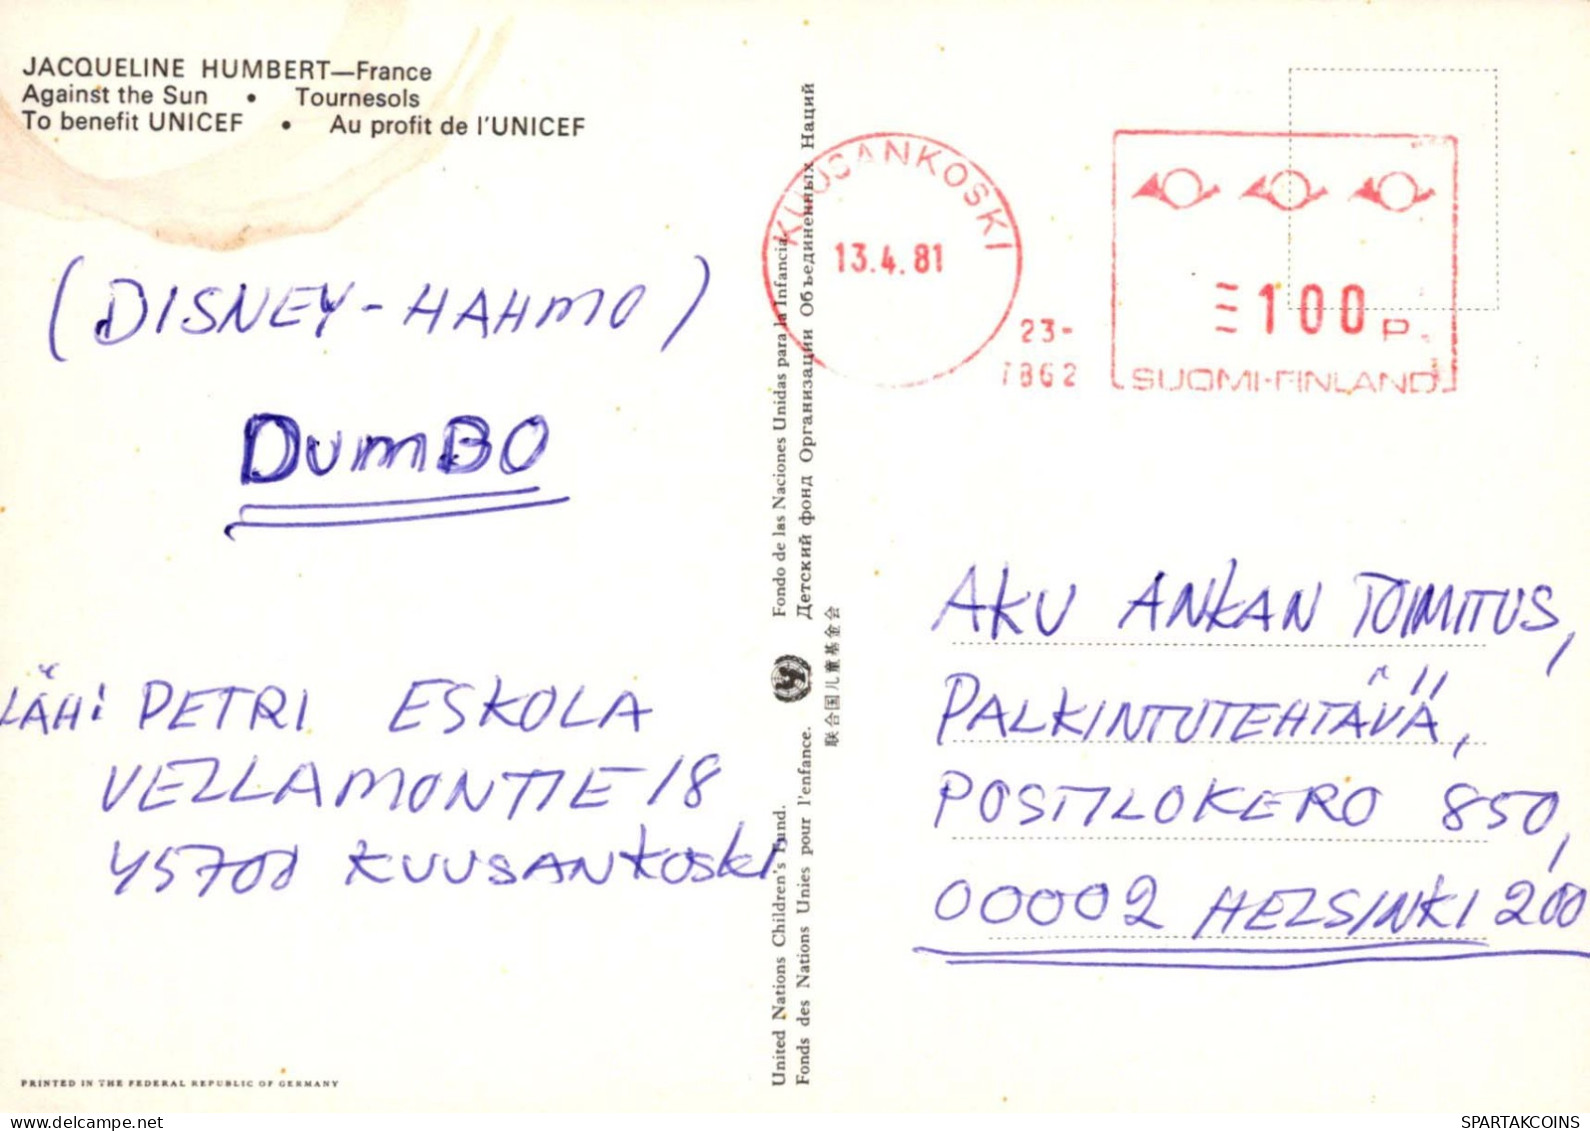 JACQUELINE HUMBERT—France
Against the Sun • Tournesols
To benefit UNICEF • Au profit de l'UNICEF
(DISNEY-HAHMO)
DUMBO
LÄH: PETRI ESKOLA
VELLAMONTIE 18
45700 KUUSANKOSKI
PRINTED IN THE FEDERAL REPUBLIC OF GERMANY
United Nations Children's Fund. Fondo de las Naciones Unidas para la Infancia.
Fonds des Nations Unies pour l'enfance. Детский фонд Организации Объединенных Наций
联合国儿童基金会
KUUSANKOSKI
13.4.81
23-
7862
100 P.
SUOMI-FINLAND
AKU ANKAN TOIMITUS,
PALKINTOTEHTÄVÄ,
POSTILOKERO 850,
00002 HELSINKI 200
SPARTAKCOINS